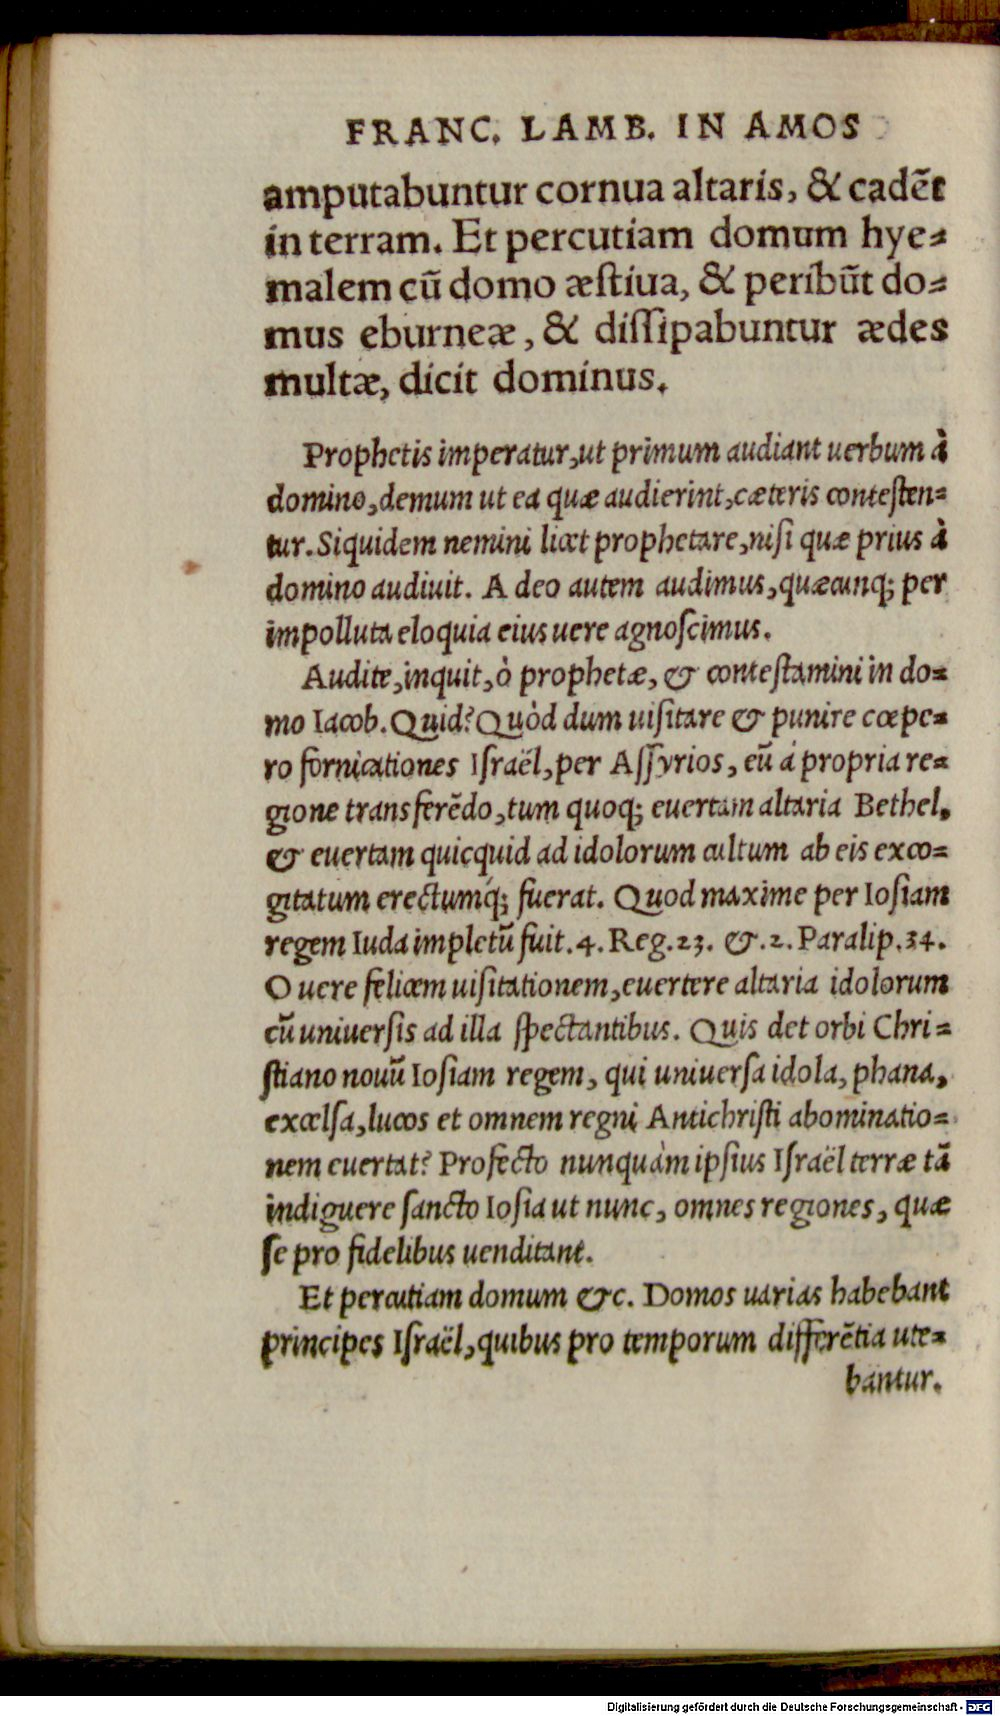 FRANC. LAMB. IN AMOS
amputabuntur cornua altaris, & cadẽt
in terram. Et percutiam domum hye⸗
malem cũ domo æſtiua, & peribũt do⸗
mus eburneæ, & diſſipabuntur ædes
multæ, dicit dominus.
Prophetis imperatur, ut primum audiant uerbum à
domino, demum ut ea quæ audierint, cæteris conteſten⸗
tur. Siquidem nemini licet prophetare, niſi quæ prius à
domino audiuit. A deo autem audimus, quæcunq; per
impolluta eloquia eius uere agnoſcimus.
Audite, inquit, ò prophetæ, & conteſtamini in do⸗
mo Iacob. Quid? Quòd dum uiſitare & punire cœpe⸗
ro fornicationes Iſraël, per Aſſyrios, eũ à propria re⸗
gione transferẽdo, tum quoq; euertam altaria Bethel,
& euertam quicquid ad idolorum cultum ab eis exco⸗
gitatum erectumq́; fuerat. Quod maxime per Ioſiam
regem Iuda impletũ fuit. 4. Reg. 23. &. 2. Paralip. 34.
O uere felicem uiſitationem, euertere altaria idolorum
cũ uniuerſis ad illa ſpectantibus. Quis det orbi Chri⸗
ſtiano nouũ Ioſiam regem, qui uniuerſa idola, phana,
excelſa, lucos et omnem regni Antichriſti abominatio⸗
nem euertat? Profecto nunquàm ipſius Iſraël terræ tã
indiguere ſancto Ioſia ut nunc, omnes regiones, quæ
ſe pro fidelibus uenditant.
Et percutiam domum &c. Domos uarias habebant
principes Iſraël, quibus pro temporum differẽtia ute⸗
bantur.
Digitalisierung gefördert durch die Deutsche Forschungsgemeinschaft - DFG